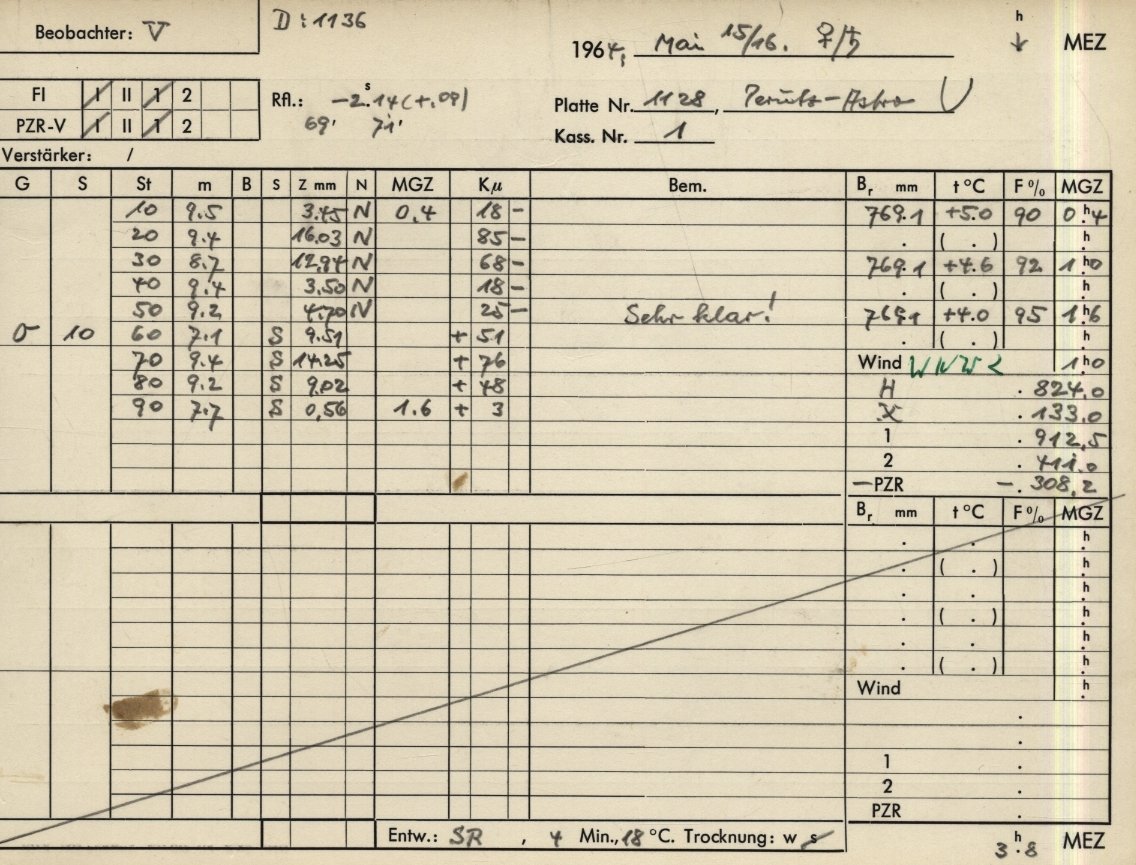 Beobachter: V
D: 1136
1964, Mai 15/16. ♀/♄
h ↓ MEZ
FI I II 1 2
PZR-V I II 1 2
Rfl.: -2.ˢ14 (+.09)
69' 71'
Platte Nr. 1128, Perutz-Astro U
Kass. Nr. 1
Verstärker: /
G S St m B S Z mm N MGZ Kμ Bem. Br mm t °C F % MGZ
10 9.5 3.45 N 0.4 18 - 769.1 +5.0 90 0ʰ.4
20 9.4 16.03 N 85 - . ( . ) h .
30 8.7 12.94 N 68 - 769.1 +4.6 92 1ʰ.0
40 9.4 3.50 N 18 - . ( . ) h .
50 9.2 4.70 N 25 - Sehr klar! 769.1 +4.0 95 1ʰ.6
σ 10 60 7.1 S 9.51 + 51 . ( . ) h .
70 9.4 S 14.25 + 76 Wind 1ʰ.0
80 9.2 S 9.02 + 48 H . 824.0
90 7.7 S 0,56 1.6 + 3 X . 133.0
1 . 912,5
2 . 411.0
- PZR - . 308,2
Br mm t °C F % MGZ
. . h .
. ( . ) h .
. h .
. ( . ) h .
. . h .
. ( . ) h .
Wind h .
.
.
1 .
2 .
PZR .
Entw.: SR , 4 Min., 18 °C. Trocknung: w s
3ʰ.8 MEZ